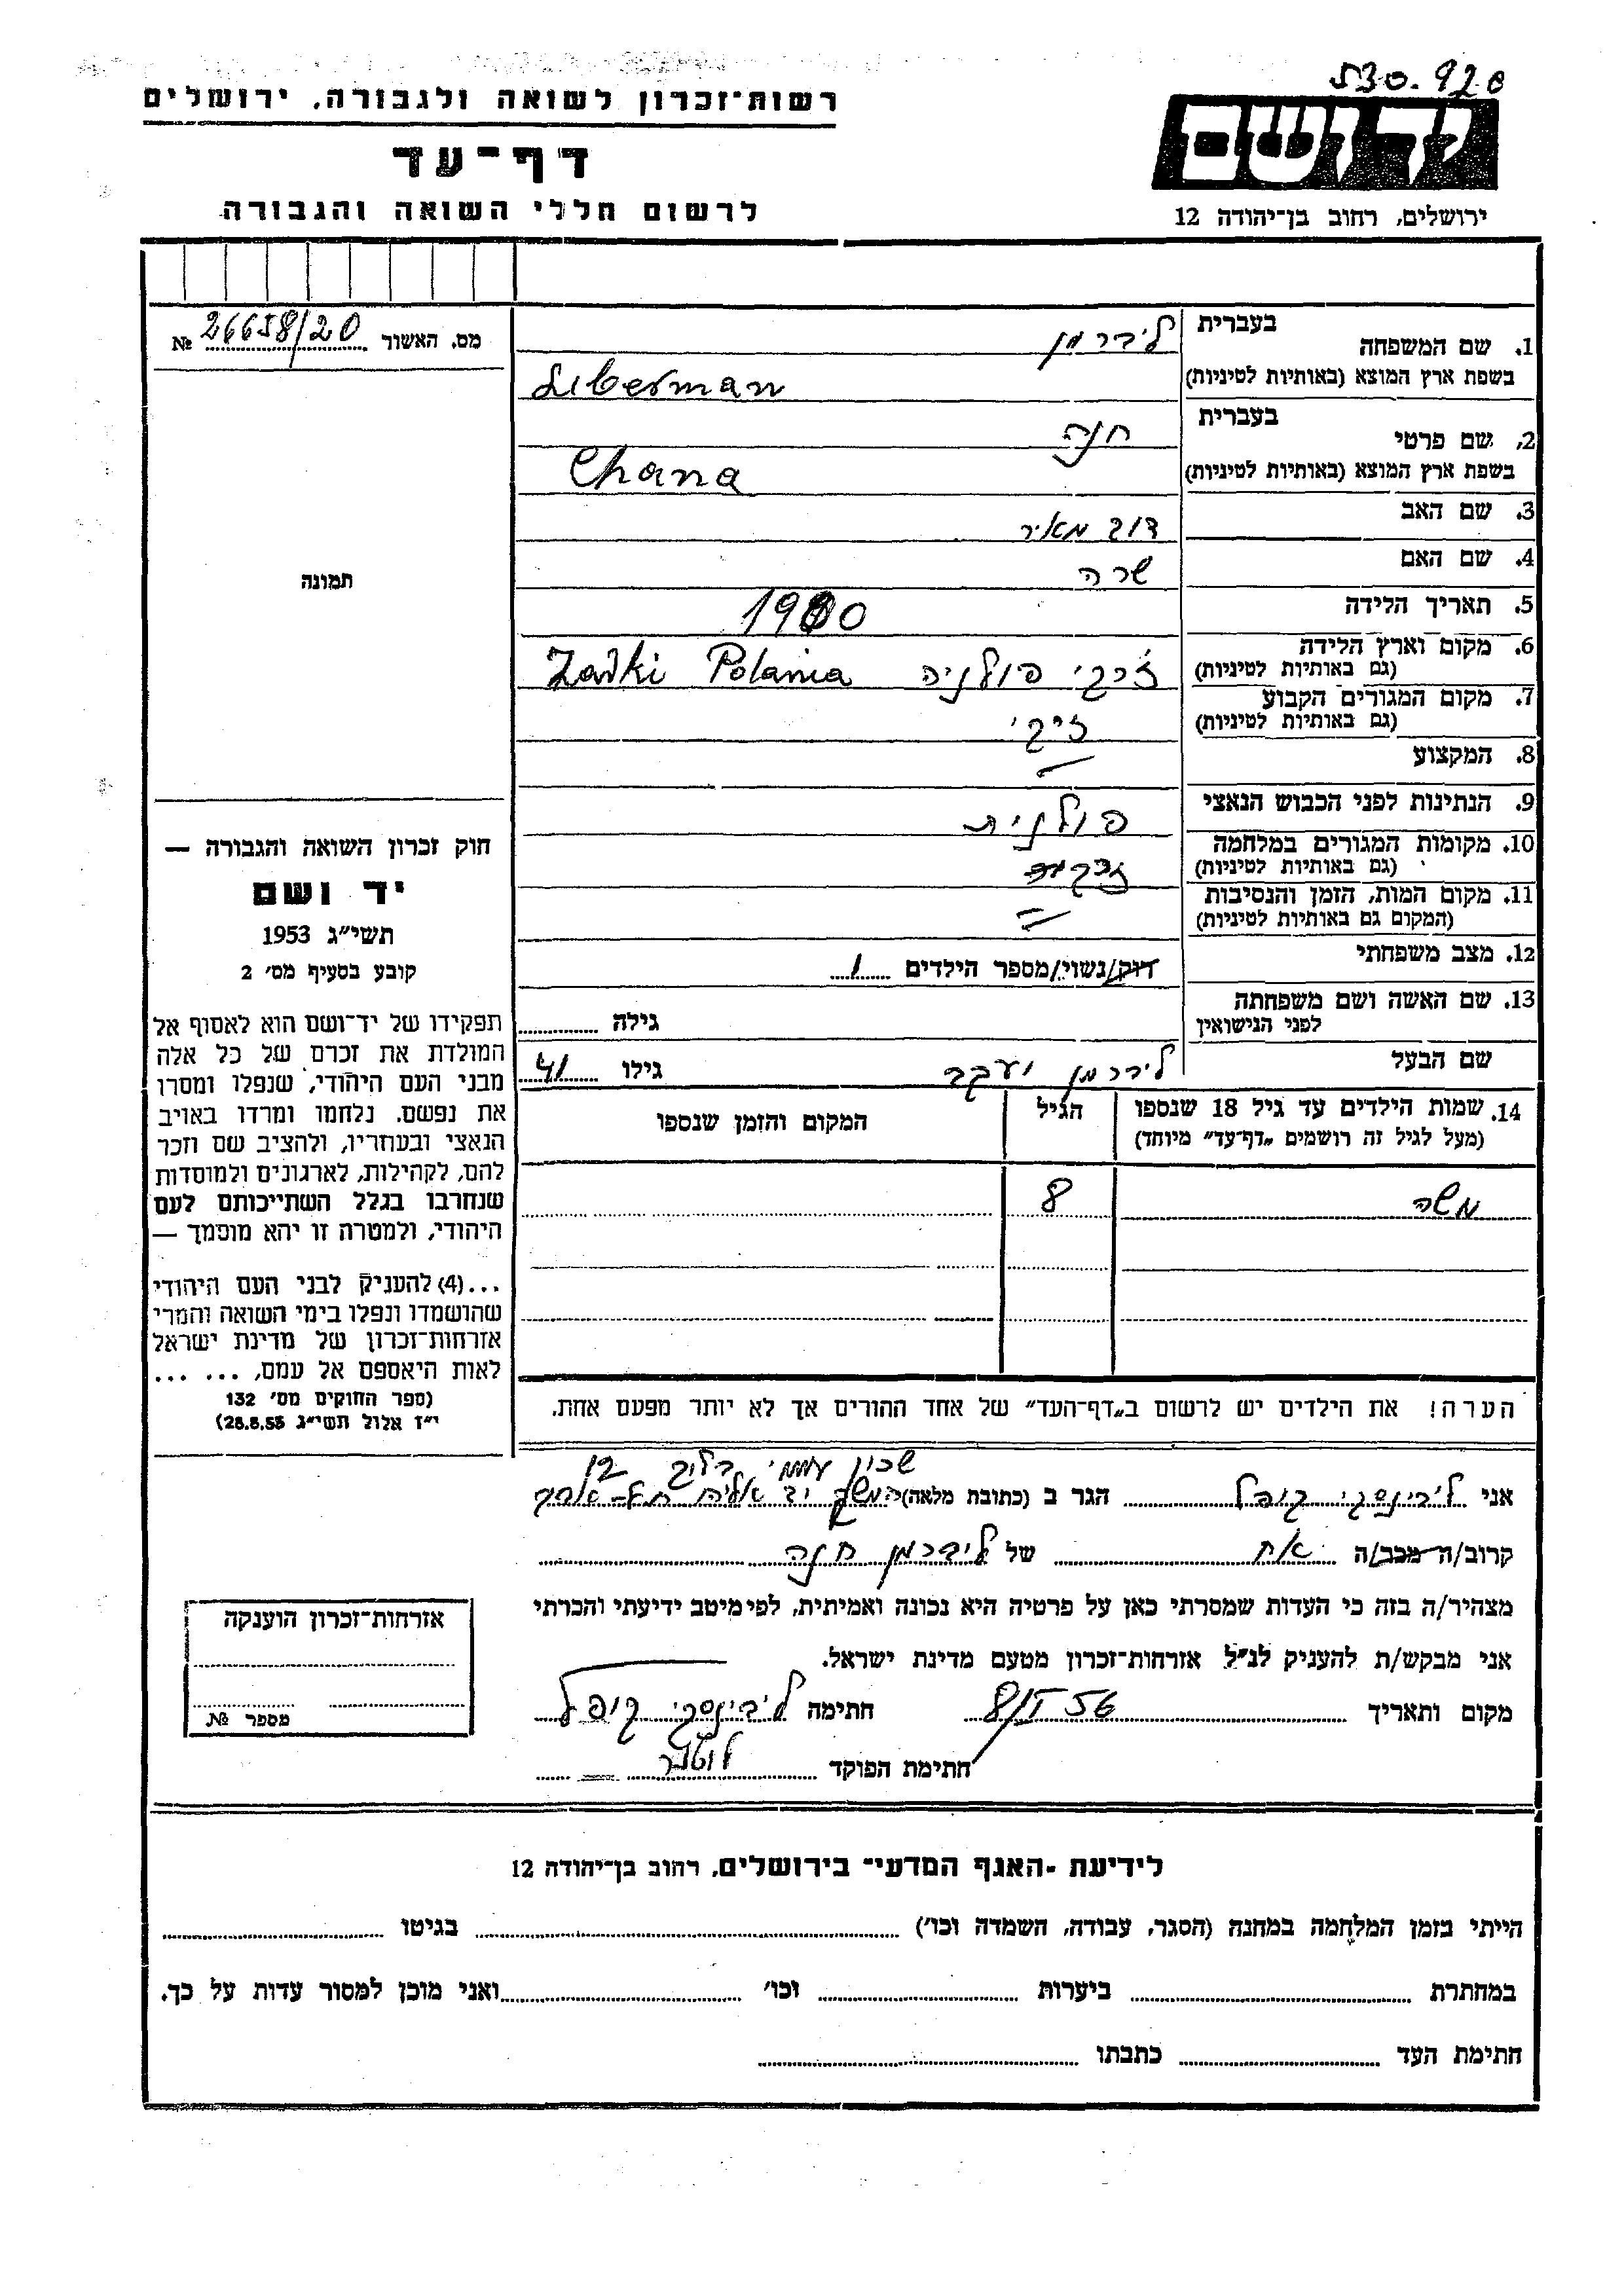 530.920
רשות־זכרון לשואה ולגבורה, ירושלים
דף־עד
לרשום חללי השואה והגבורה
ידושם
ירושלים, רחוב בן־יהודה 12
מס. האשור 26658/20 №
תמונה
1. שם המשפחה בעברית ליברמן
בשפת ארץ המוצא (באותיות לטיניות) Liberman
2. שם פרטי בעברית חנה
בשפת ארץ המוצא (באותיות לטיניות) Chana
3. שם האב דוב מאיר
4. שם האם שרה
5. תאריך הלידה 1900
6. מקום וארץ הלידה (גם באותיות לטיניות) זרקי פולניה Zarki Polania
7. מקום המגורים הקבוע (גם באותיות לטיניות) זרקי
8. המקצוע —
9. הנתינות לפני הכבוש הנאצי פולנית
10. מקומות המגורים במלחמה (גם באותיות לטיניות)
11. מקום המות, הזמן והנסיבות (המקום גם באותיות לטיניות)
12. מצב משפחתי רווק/נשוי/מספר הילדים 1
13. שם האשה ושם משפחתה לפני הנישואין גילה
שם הבעל ליברמן יעקב גילו 41
14. שמות הילדים עד גיל 18 שנספו (מעל לגיל זה רושמים „דף־עד” מיוחד) הגיל המקום והזמן שנספו
משה 8
הערה! את הילדים יש לרשום ב„דף־העד” של אחד ההורים אך לא יותר מפעם אחת.
חוק זכרון השואה והגבורה —
יד ושם
תשי״ג 1953
קובע בסעיף מס׳ 2
תפקידו של יד־ושם הוא לאסוף אל
המולדת את זכרם של כל אלה
מבני העם היהודי, שנפלו ומסרו
את נפשם, נלחמו ומרדו באויב
הנאצי ובעוזריו, ולהציב שם וזכר
להם, לקהילות, לארגונים ולמוסדות
שנחרבו בגלל השתייכותם לעם
היהודי, ולמטרה זו יהא מוסמך —
...(4) להעניק לבני העם היהודי
שהושמדו ונפלו בימי השואה והמרי
אזרחות־זכרון של מדינת ישראל
לאות היאספם אל עמם, ... ...
(ספר החוקים מס׳ 132
י״ז אלול תשי״ג 28.8.53)
שכון עממי בלוק 12
אני ליבינסקי קופל הגר ב (כתובת מלאה) המשך יד אליהו תל-אביב
קרוב/ה מכר/ה אח של ליברמן חנה
מצהיר/ה בזה כי העדות שמסרתי כאן על פרטיה היא נכונה ואמיתית, לפי מיטב ידיעתי והכרתי
אני מבקש/ת להעניק לנ״ל אזרחות־זכרון מטעם מדינת ישראל.
מקום ותאריך 56 חתימה ליבינסקי קופל
חתימת הפוקד
אזרחות־זכרון הוענקה
מספר №
לידיעת ״האגף המדעי״ בירושלים, רחוב בן־יהודה 12
הייתי בזמן המלחמה במחנה (הסגר, עבודה, השמדה וכו׳) בגיטו
במחתרת ביערות וכו׳ ואני מוכן למסור עדות על כך.
חתימת העד כתבתו